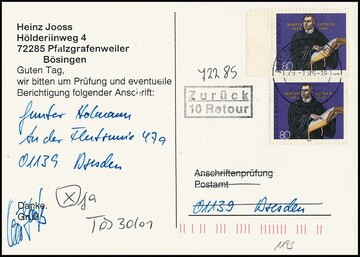 Heinz Jooss
Hölderlinweg 4
72285 Pfalzgrafenweiler
Bösingen
Guten Tag,
wir bitten um Prüfung und eventuelle
Berichtigung folgender Anschrift:
Günter Hofmann
An der Flutrinne 47a
01139 Dresden
ja
Danke.
Gruß
TPS 30/01
72285
Zurück
10 Retour
MARTIN LUTHER
80
80
Anschriftenprüfung
Postamt
01139 Dresden
1193